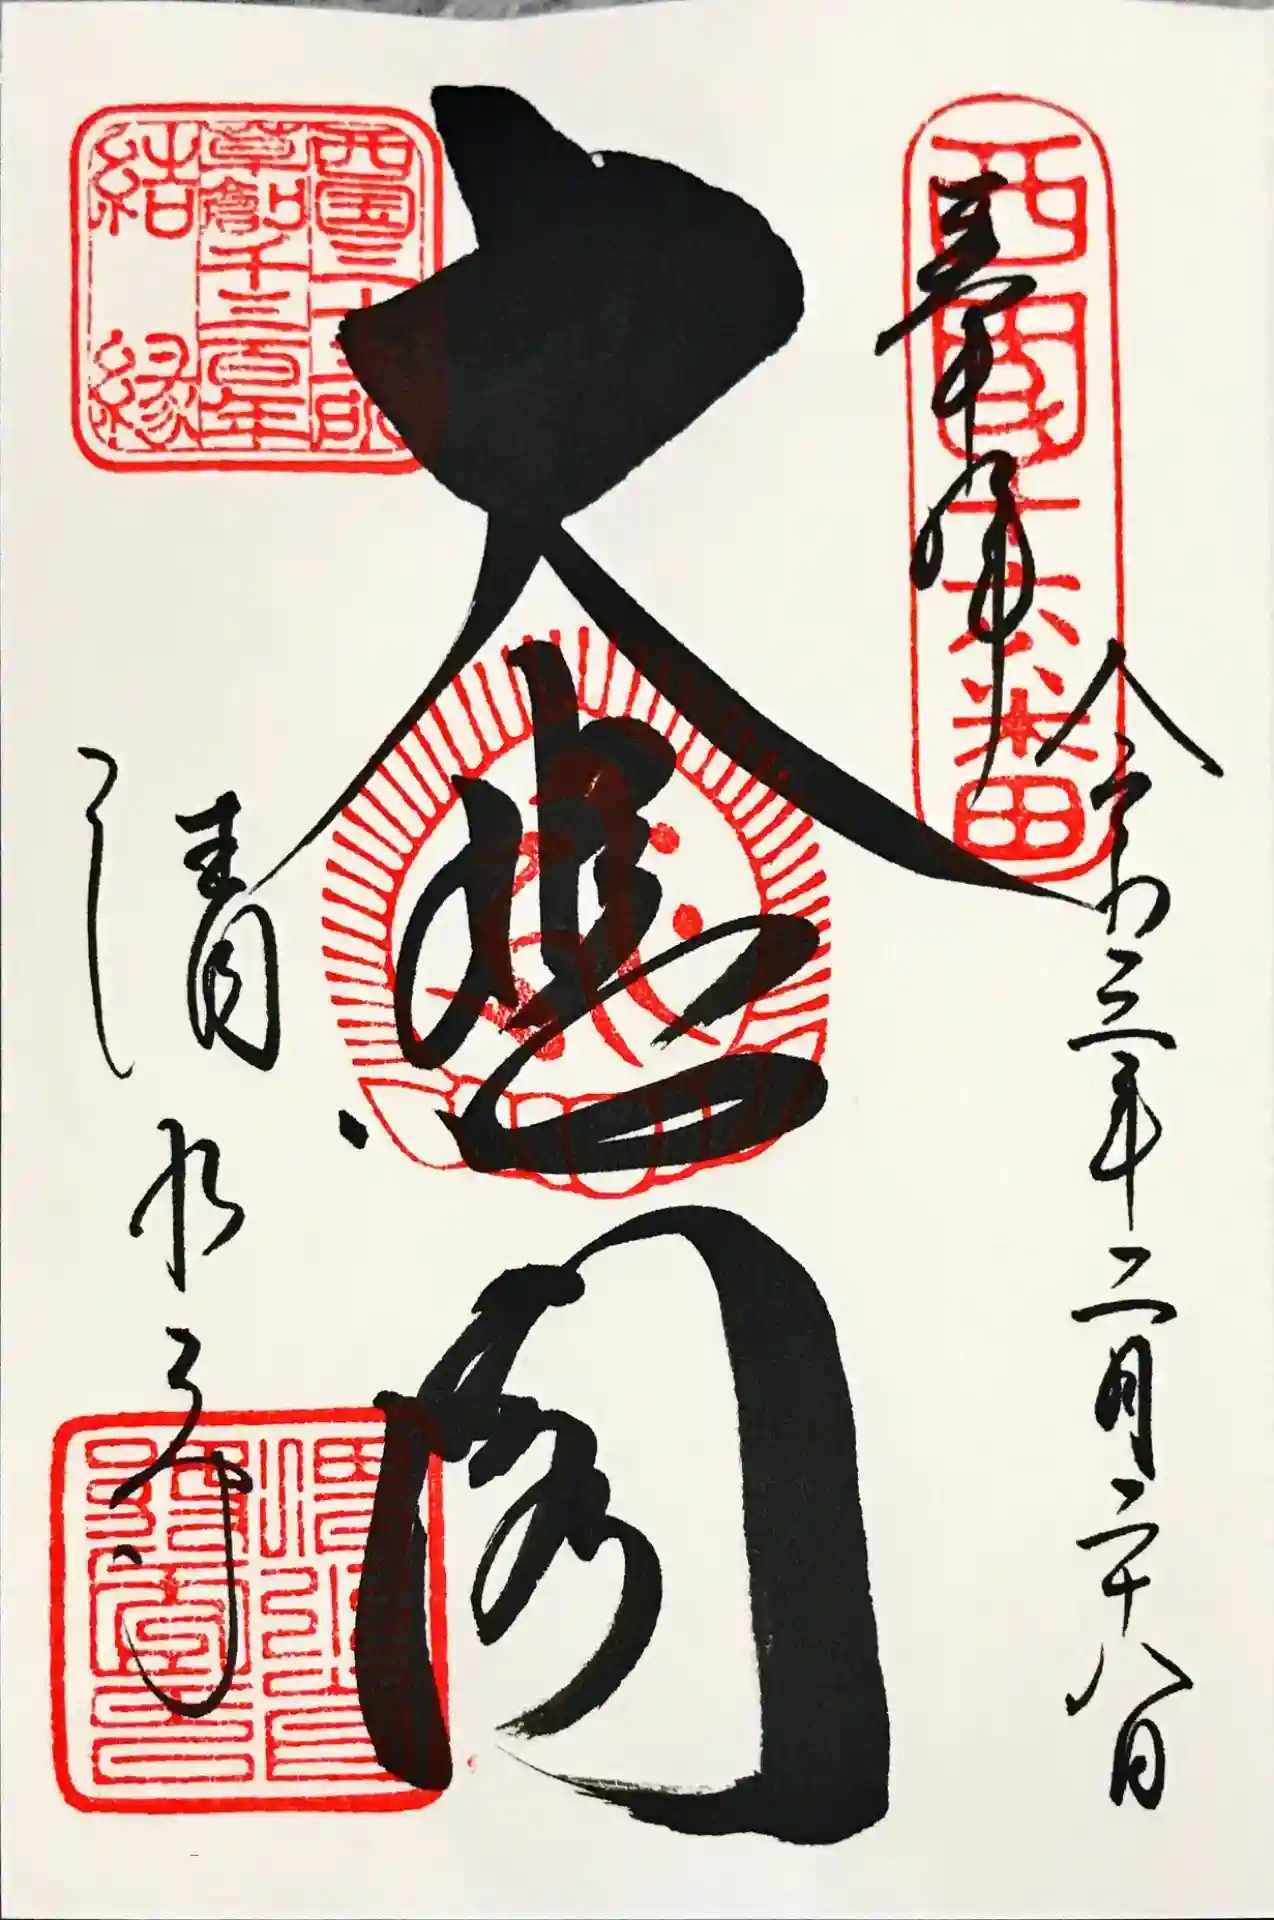 西國十六番
奉拝
令和三年二月二十八日
大悲閣
西国三十三所
草創千三百年
結縁
清水寺